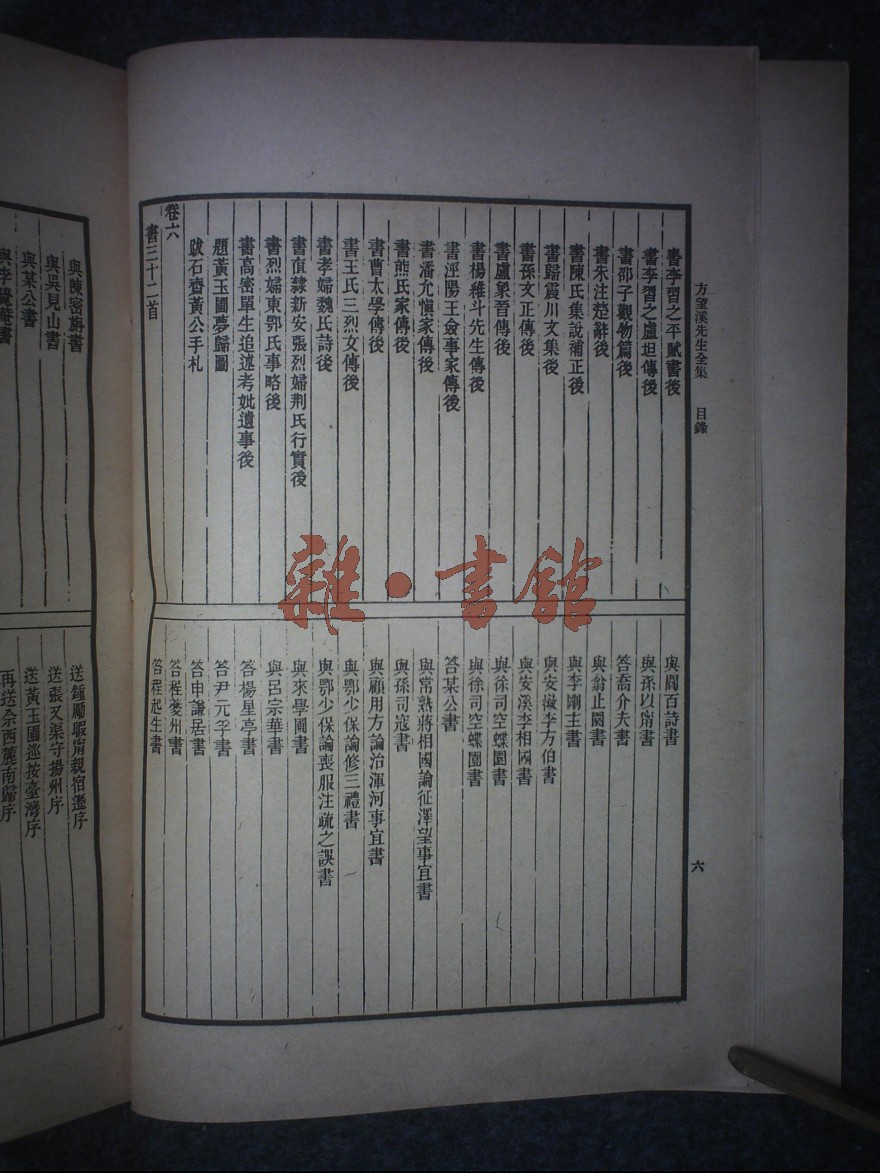 方望溪先生全集 目錄
六
書李習之平賦書後
書李習之盧坦傳後
書邵子觀物篇後
書朱注楚辭後
書陳氏集說補正後
書歸震川文集後
書孫文正傳後
書盧象晉傳後
書楊維斗先生傳後
書涇陽王僉事家傳後
書潘允慎家傳後
書熊氏家傳後
書曹太學傳後
書王氏三烈女傳後
書孝婦魏氏詩後
書直隸新安張烈婦荆氏行實後
書烈婦東鄂氏事略後
書高密單生追述考妣遺事後
題黃玉圃夢歸圖
跋石齋黃公手札
卷六
書三十二首
與閻百詩書
與孫以甯書
答喬介夫書
與翁止園書
與李剛主書
與安徽李方伯書
與安溪李相國書
與徐司空蝶園書
與徐司空蝶園書
答某公書
與常熟蔣相國論征澤望事宜書
與孫司寇書
與顧用方論治渾河事宜書
與鄂少保論修三禮書
與鄂少保論喪服注疏之誤書
與來學圃書
與呂宗華書
答楊星亭書
答尹元孚書
答申謙居書
答程夔州書
答程起生書
與陳密旃書
與吳見山書
與某公書
與李覺菴書
送鍾勵暇甯親宿遷序
送張又渠守揚州序
送黃玉圃巡按臺灣序
再送佘西麓南歸序
雜·書館